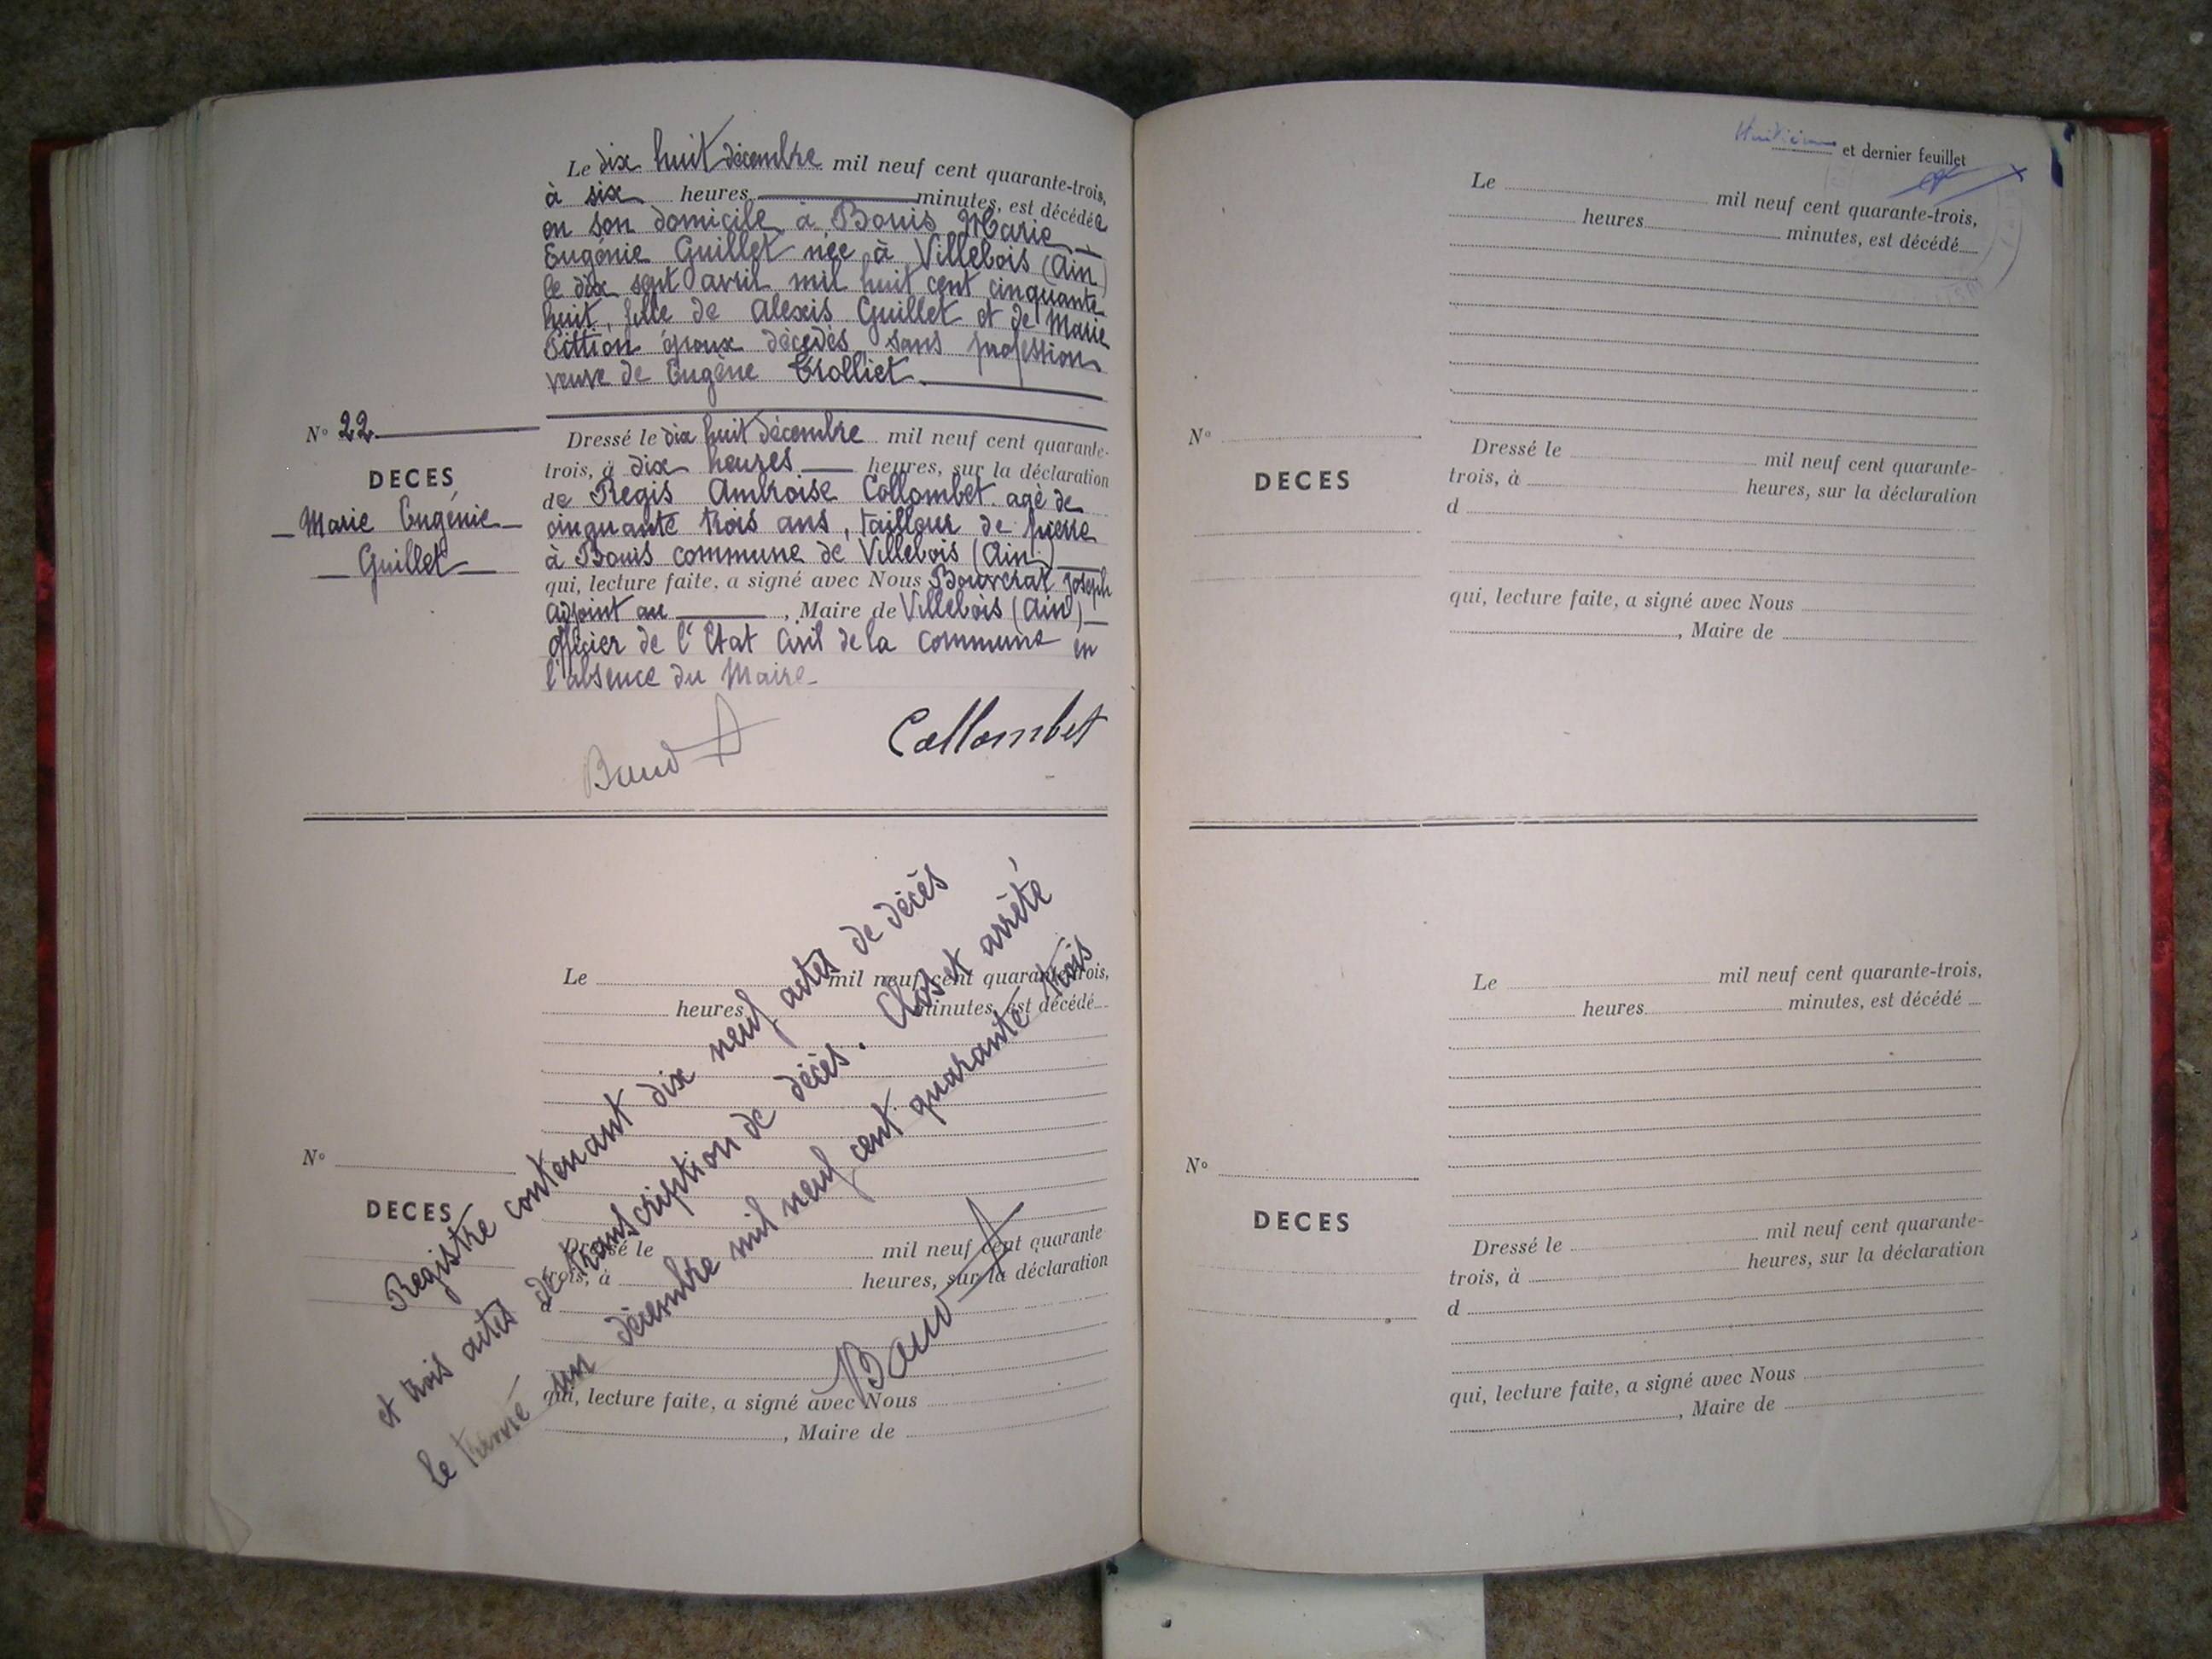 Le dix huit décembre mil neuf cent quarante-trois,
à six heures minutes, est décédée
en son domicile à Bouis Marie
Eugénie Guillet née à Villebois (Ain)
le dix sept avril mil huit cent cinquante
huit, fille de Alexis Guillet et de Marie
époux décédés, sans profession
veuve de Eugène Trolliet.
N° 22
DECES
Marie Eugénie
Guillet
Dressé le dix huit décembre mil neuf cent quarante-
trois, à dix heures heures, sur la déclaration
de Regis Ambroise Collombet agé de
cinquante trois ans, tailleur de pierre
à Bouis commune de Villebois (Ain)
qui, lecture faite, a signé avec Nous Joseph
adjoint au , Maire de Villebois (Ain)
officier de l'Etat Civil de la commune en
l'absence du Maire
Collombet
Le mil neuf cent quarante-trois,
heures minutes, est décédé
N°
DECES
Dressé le mil neuf cent quarante
trois, à heures, sur la déclaration
d
qui, lecture faite, a signé avec Nous
, Maire de
Registre contenant dix neuf actes de décès
et trois actes de transcription de décès. Clos et arrêté
le trente un décembre mil neuf cent quarante trois
et dernier feuillet
Le mil neuf cent quarante-trois,
heures minutes, est décédé
N°
DECES
Dressé le mil neuf cent quarante-
trois, à heures, sur la déclaration
d
qui, lecture faite, a signé avec Nous
, Maire de
Le mil neuf cent quarante-trois,
heures minutes, est décédé
N°
DECES
Dressé le mil neuf cent quarante-
trois, à heures, sur la déclaration
d
qui, lecture faite, a signé avec Nous
, Maire de